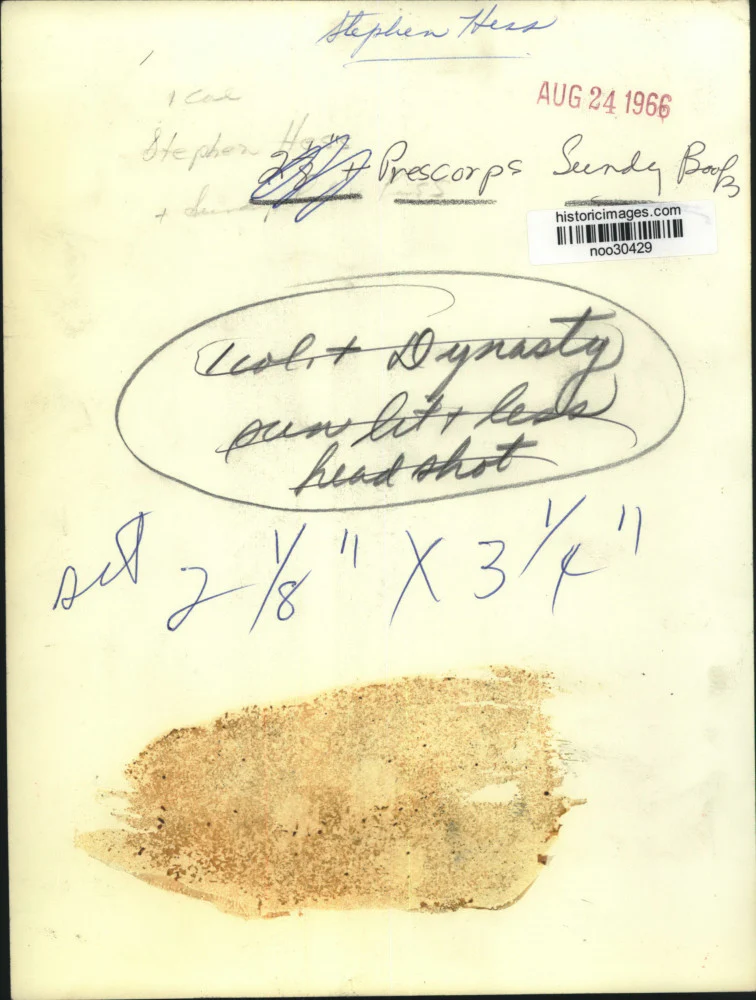 Stephen Hess
AUG 24 1966
1 col
Stephen Hess
+ Prescorps Sundy Books
historicimages.com
noo30429
1 col. + Dynasty
head shot
2 1/8" X 3 1/4"